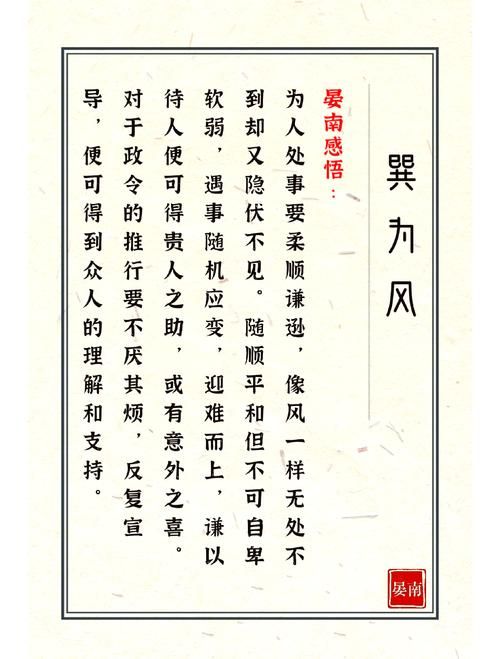 巽为风
晏南感悟：
为人处事要柔顺谦逊，像风一样无处不
到却又隐伏不见。随顺平和但不可自卑
软弱，遇事随机应变，迎难而上，谦以
待人便可得贵人之助，或有意外之喜。
对于政令的推行要不厌其烦，反复宣
导，便可得到众人的理解和支持。
晏南